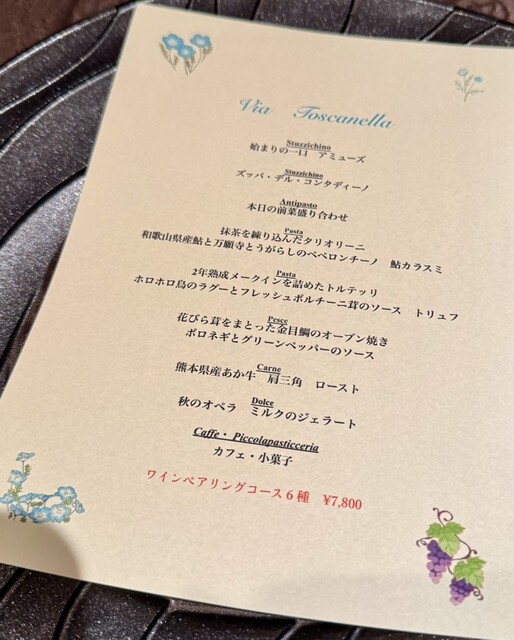 Via Toscanella
Stuzzichino
始まりの一口 アミューズ
Stuzzichino
ズッパ・デル・コンタディーノ
Antipasto
本日の前菜盛り合わせ
Pasta
抹茶を練り込んだタリオリーニ
和歌山県産鮎と万願寺とうがらしのペペロンチーノ 鮎カラスミ
Pasta
2年熟成メークインを詰めたトルテッリ
ホロホロ鳥のラグーとフレッシュポルチーニ茸のソース トリュフ
Pesce
花びら茸をまとった金目鯛のオーブン焼き
ポロネギとグリーンペッパーのソース
Carne
熊本県産あか牛 肩三角 ロースト
Dolce
秋のオペラ ミルクのジェラート
Caffe・Piccolapasticceria
カフェ・小菓子
ワインペアリングコース6種 ¥7,800